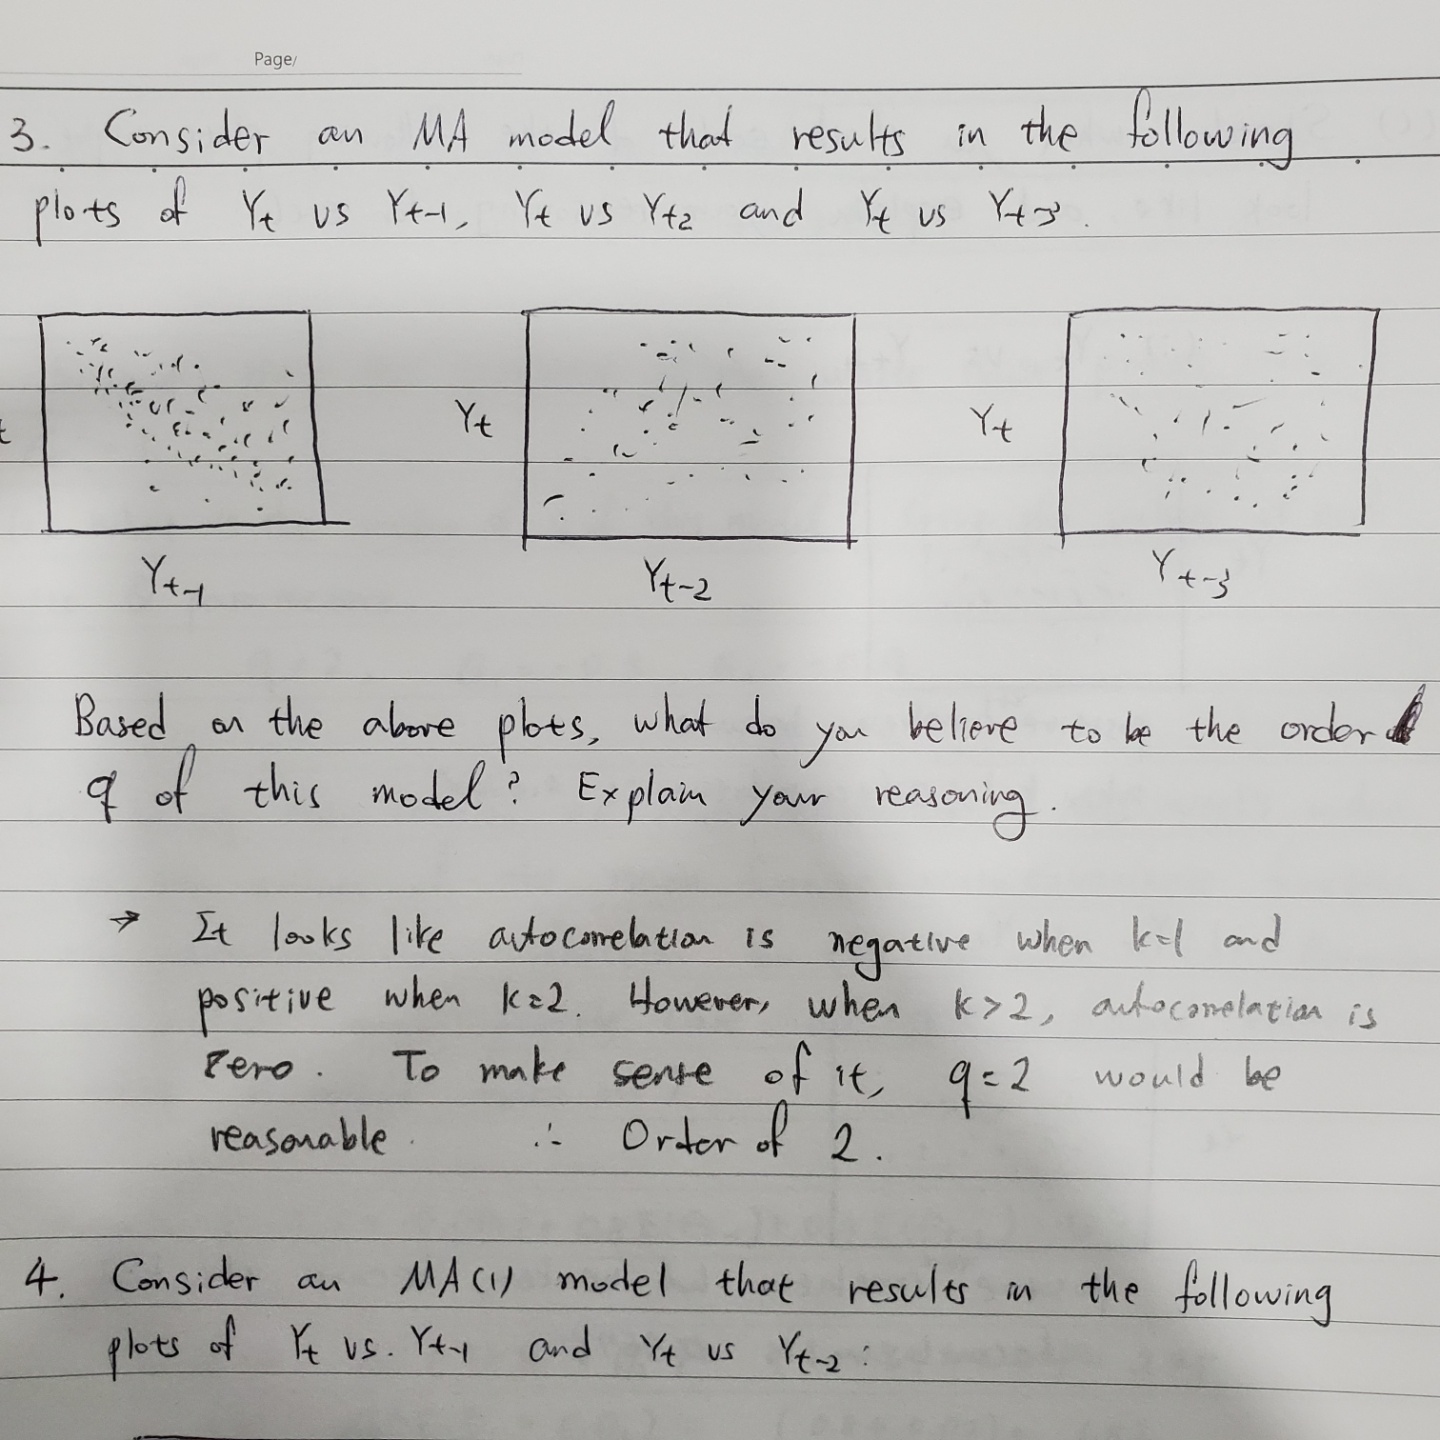 Page/
3. Consider an MA model that results in the following
plots of Yt vs Yt-1, Yt vs Yt2 and Yt vs Yt-3.
t
Yt
Yt
Yt-1
Yt-2
Yt-3
Based on the above plots, what do you believe to be the order
q of this model? Explain your reasoning.
→ It looks like autocorrelation is negative when k=1 and
positive when k=2. However, when k>2, autocorrelation is
zero. To make sense of it, q=2 would be
reasonable. ∴ Order of 2.
4. Consider an MA(1) model that results in the following
plots of Yt vs. Yt-1 and Yt vs Yt-2: